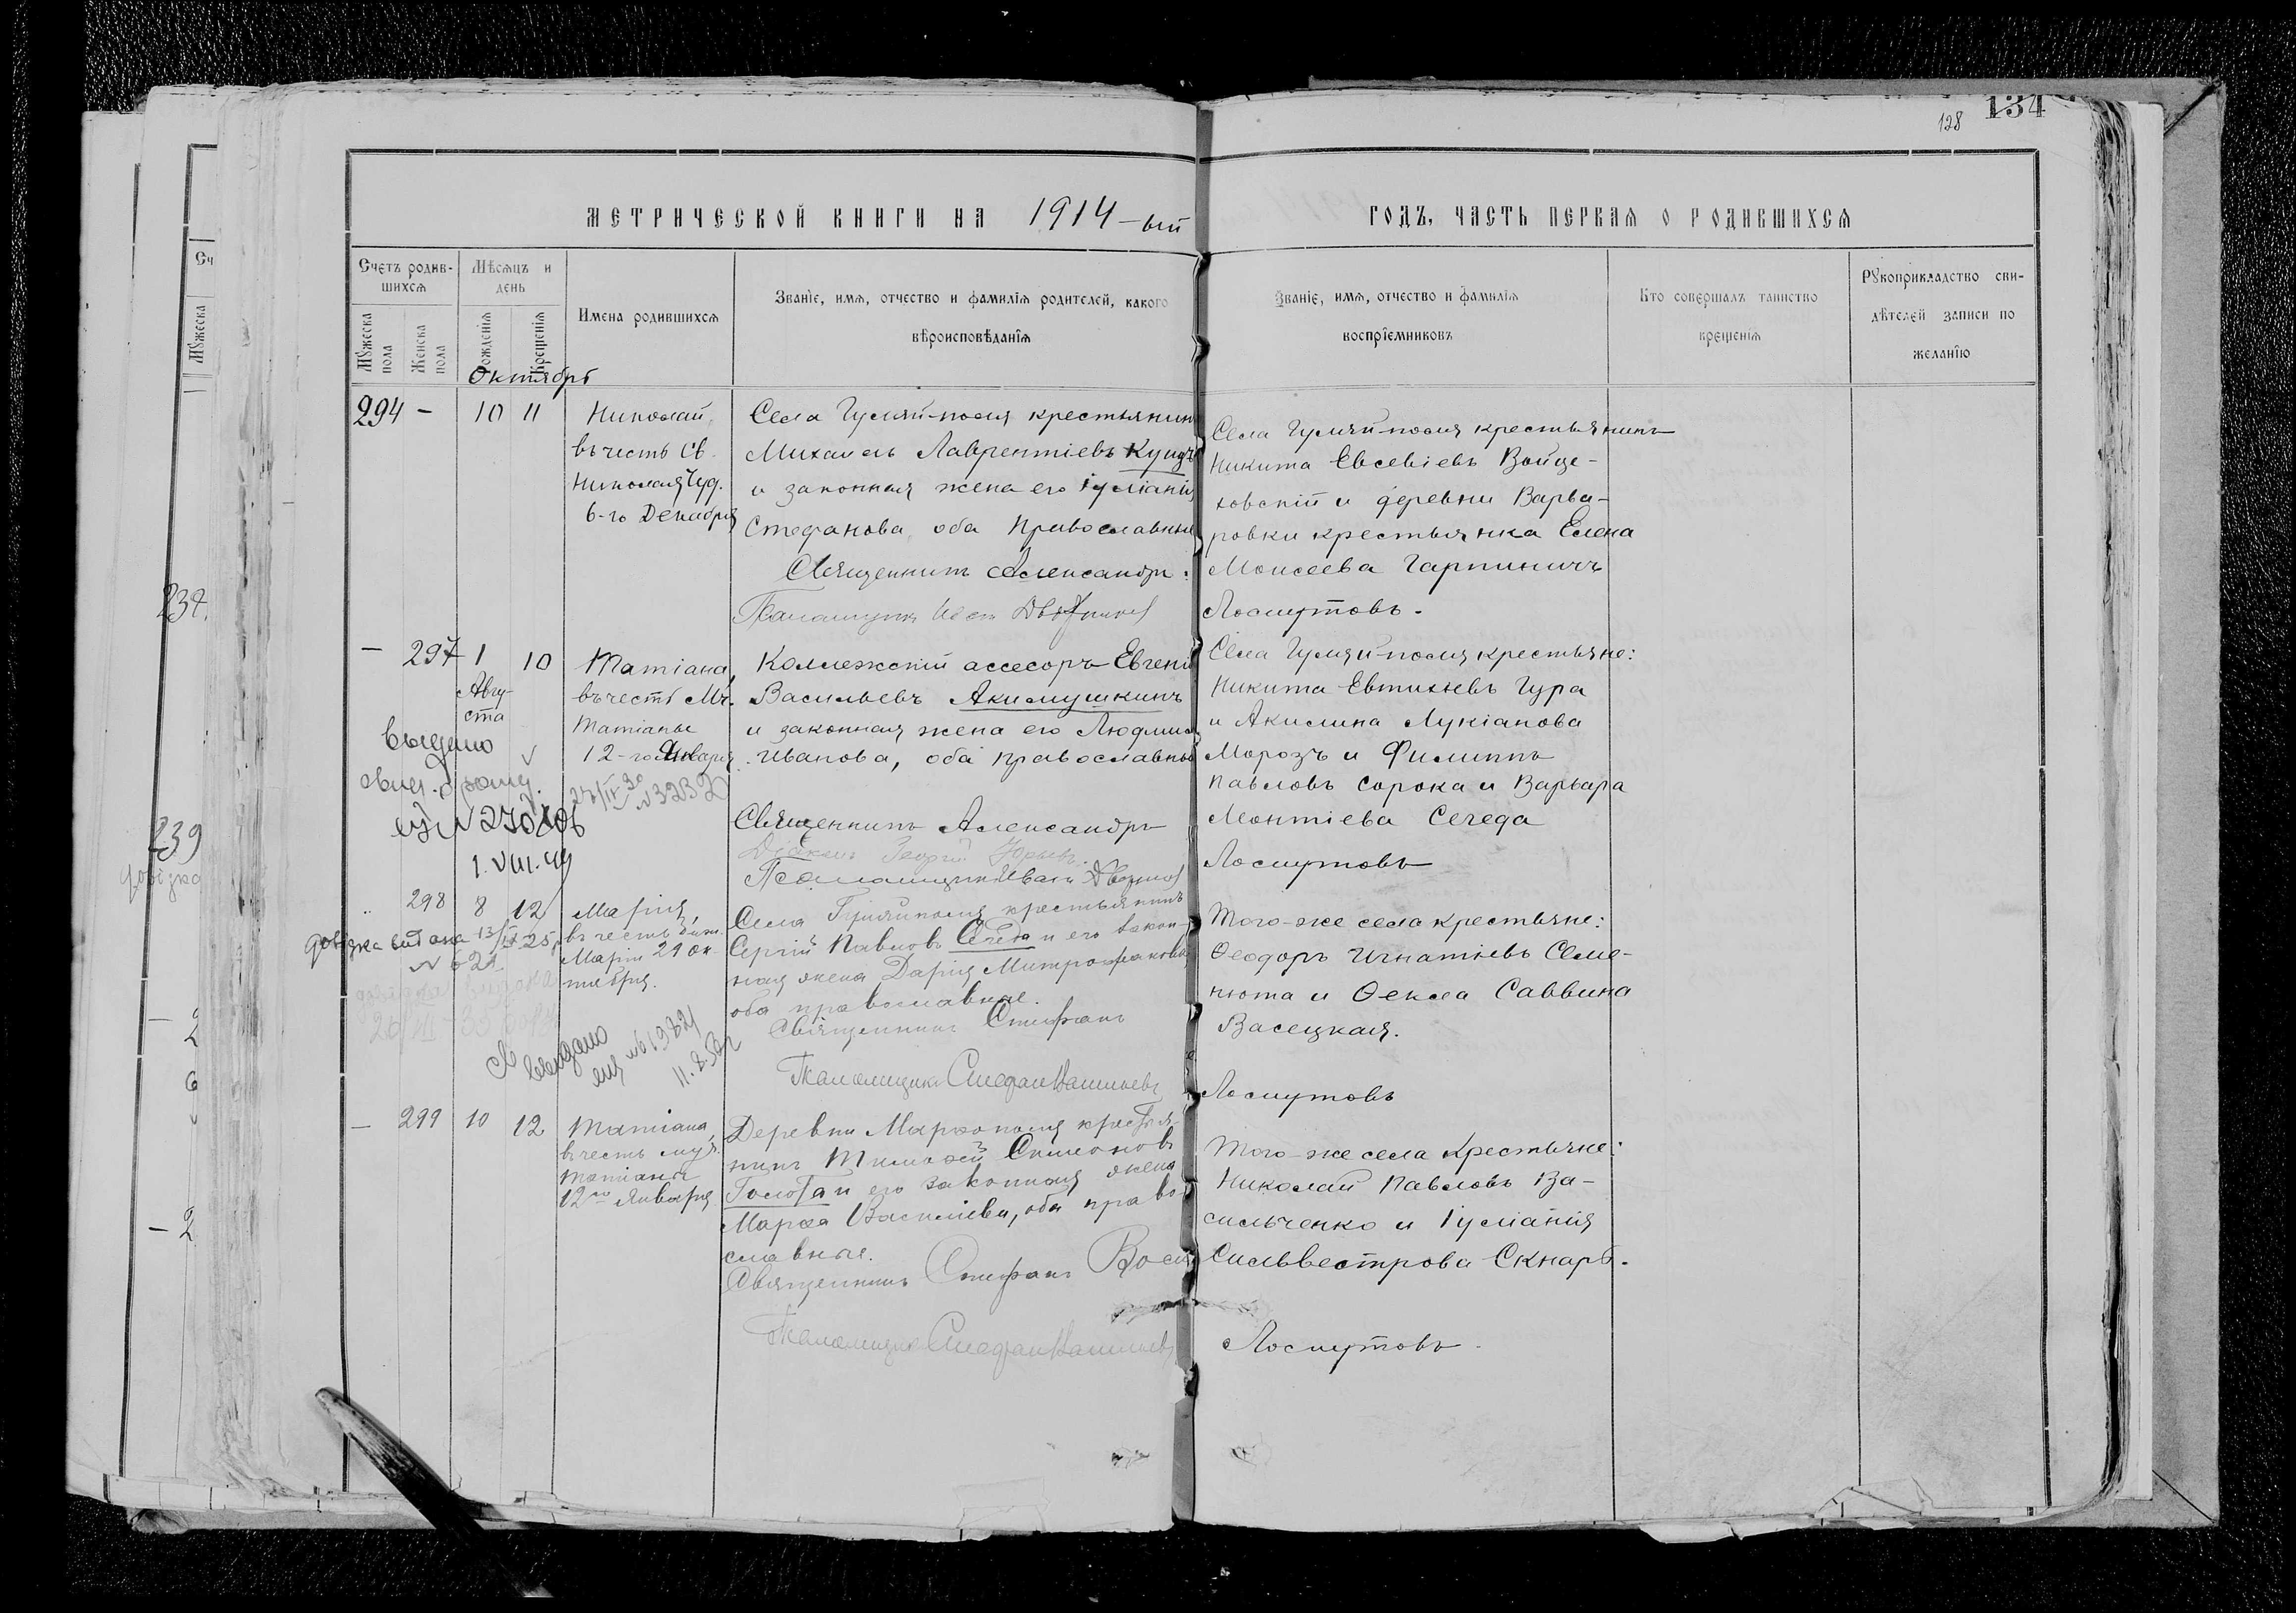 134
128
МЕТРИЧЕСКОЙ КНИГИ НА 1914-ый
ГОДЪ, ЧАСТЬ ПЕРВАЯ О РОДИВШИХСЯ
Счетъ родив-
шихся
Мужеска пола
Женска пола
Мѣсяцъ и
день
Рожденія
Крещенія
Имена родившихся
Званіе, имя, отчество и фамилія родителей, какого
вѣроисповѣданія
Званіе, имя, отчество и фамилія
воспріемниковъ
Кто совершалъ таинство
крещенія
Рукоприкладство сви-
дѣтелей записи по
желанію
Октябрь
294 - 10 11
Николай,
въ честь Св.
Николая Чуд.
6-го Декабря
Села Гуляй-поля крестьянинъ
Михаилъ Лаврентіевъ
и законная жена его Іуліанія
Стефанова, оба православные
Священникъ Александръ
Села Гуляй-поля крестьянинъ
Никита Евсевіевъ Войце-
ховскій и деревни Варва-
ровки крестьянка Елена
Моисеева
Лосмутовъ.
- 297 1 10
Авгу-
ста
Татіана,
въ честь Мч.
Татіаны
12-го Января
Коллежскій ассесоръ Евгеній
Васильевъ Акимушкинъ
и законная жена его Людмила
Иванова, оба православные
Священникъ Александръ
Діаконъ Георгій Юрьевъ.
Села Гуляй-поля крестьяне:
Никита Евтихіевъ Гура
и Акилина Лукіанова
Морозъ и Филиппъ
Павловъ Сорока и Варвара
Леонтіева Середа
Лосмутовъ
выдано
1.VIII.49
27/IV 30 N 3232
298 8 12
Марія,
въ честь
Маріи 29 ок-
тября.
Села Гуляйполя крестьянинъ
Сергій Павловъ Середа и его закон-
ная жена Дарія Митрофанова,
оба православные.
Священникъ Стефанъ
Псаломщикъ Стефанъ
Того-же села крестьяне:
Ѳеодоръ Игнатіевъ Семе-
нюта и Ѳекла Саввина
Васецкая.
Лосмутовъ
довідка видана 13/IX 25 р
N 621
выдано
- 299 10 12
Татіана,
въ честь муч.
Татіаны
12го Января
Деревни Марфополя крестья-
нинъ Тимоѳей Симеоновъ
Голота и его законная жена
Марѳа Василіева, оба право-
славные.
Священникъ Стефанъ
Псаломщикъ Стефанъ
Того-же села крестьяне:
Николай Павловъ Ва-
сильченко и Іуліанія
Сильвестрова Скнарь.
Лосмутовъ.
Сч
Мужеска
239
довідка